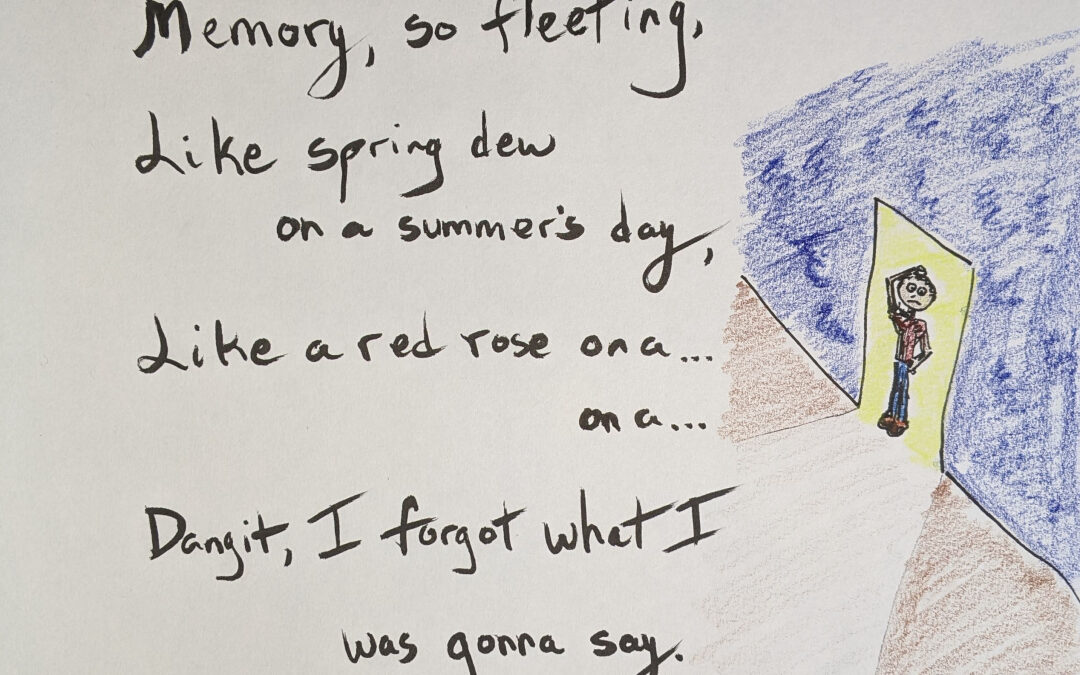 Memory, so fleeting,
Like spring dew
on a summer's day,
Like a red rose on a...
on a...
Dangit, I forgot what I
was gonna say.